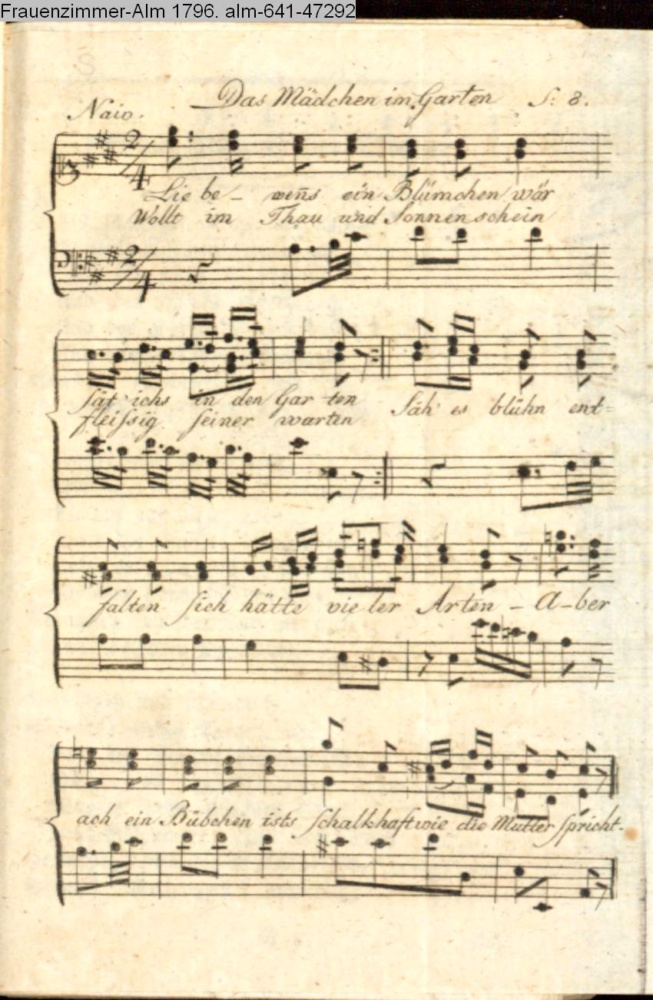 Frauenzimmer-Alm 1796. alm-641-47292
Das Mädchen im Garten S: 8.
Naiv.
2/4
Lie be - weñs ein Blümchen wär
Wollt im Thau und Sonnenschein
2/4
sät ichs in den Gar ten säh' es blühn ent-
fleißig seiner warten
falten sich hätte vie ler Arten - A-ber
ach ein Bübchen ists schalkhaft wie die Mutter spricht.